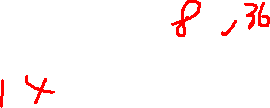 8 , 36
1 4